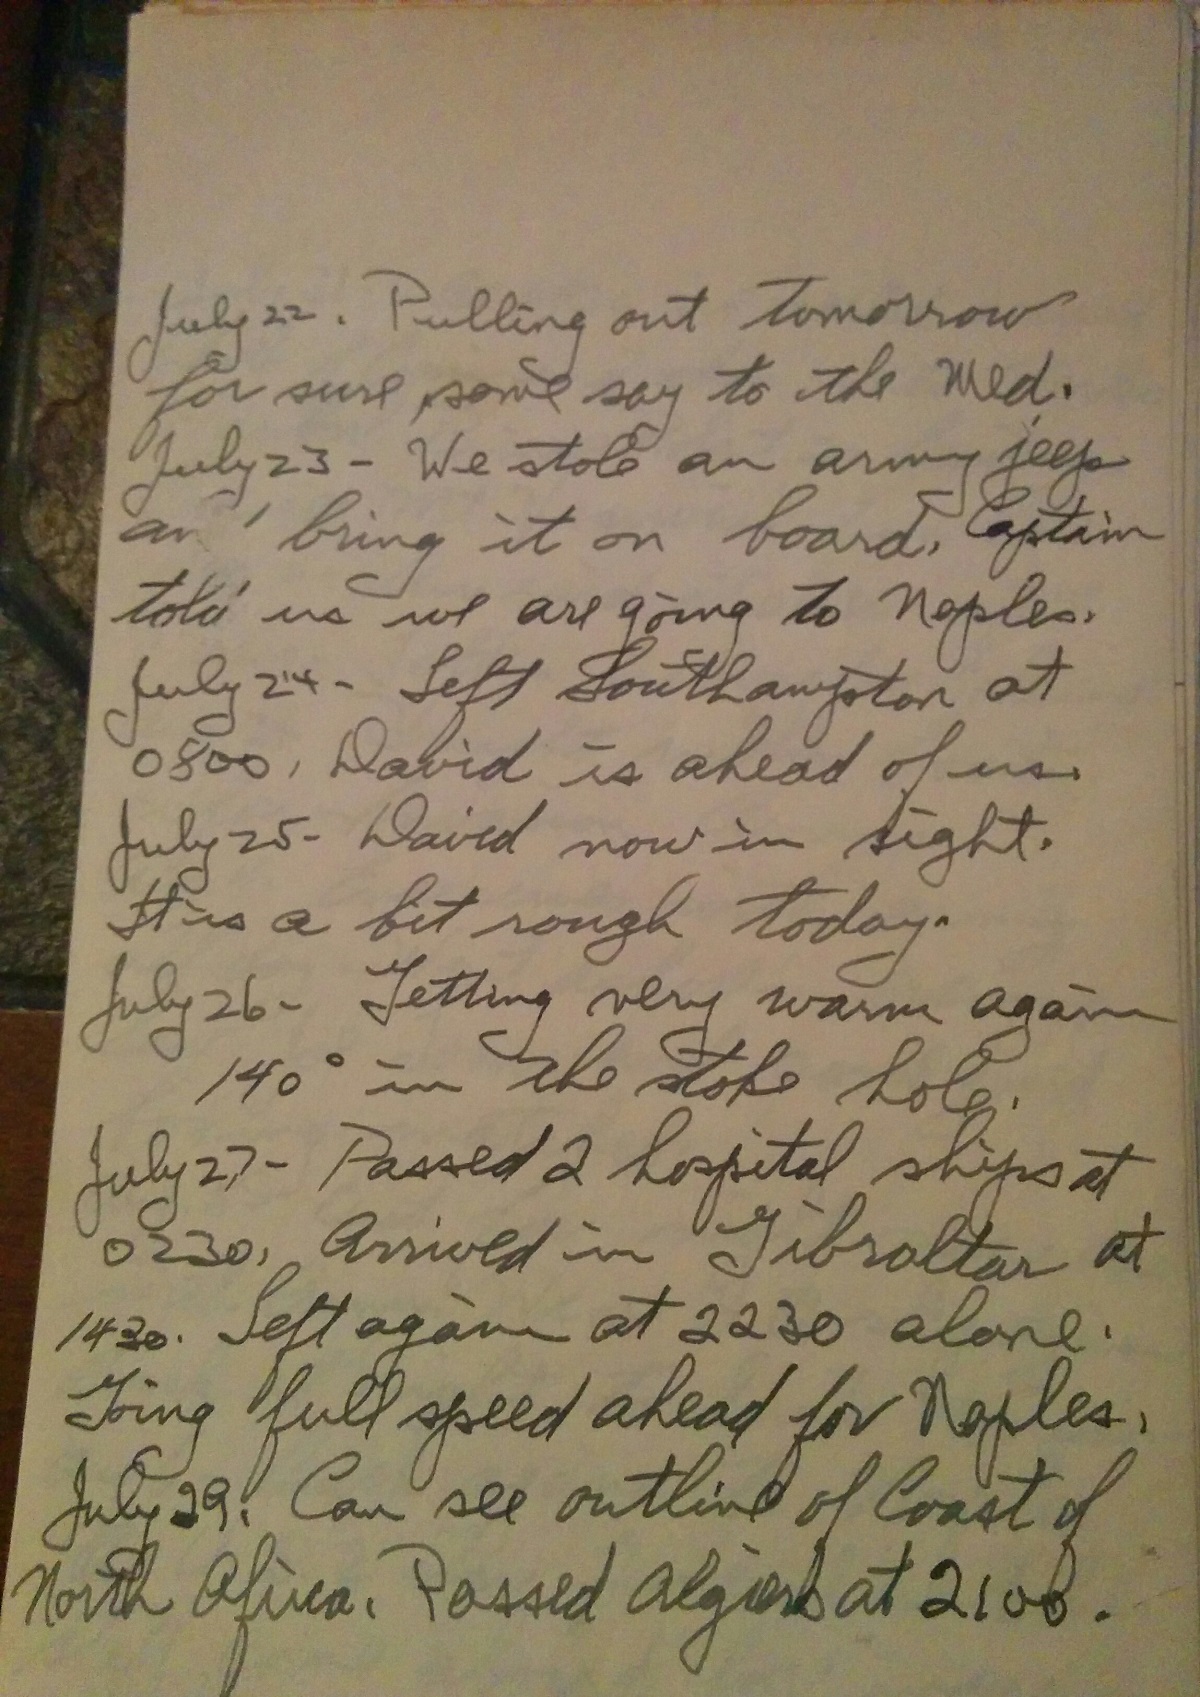 July 22. Pulling out tomorrow
for sure, some say to the Med.
July 23 - We stole an army jeep
an' bring it on board. Captain
told us we are going to Naples.
July 24 - Left Southampton at
0800. David is ahead of us.
July 25 - David now in sight.
It is a bit rough today.
July 26 - Getting very warm again
140° in the stoke hole.
July 27 - Passed 2 hospital ships at
0230. Arrived in Gibraltar at
1430. Left again at 2230 alone.
Going full speed ahead for Naples.
July 29. Can see outline of Coast of
North Africa. Passed Algiers at 2100.